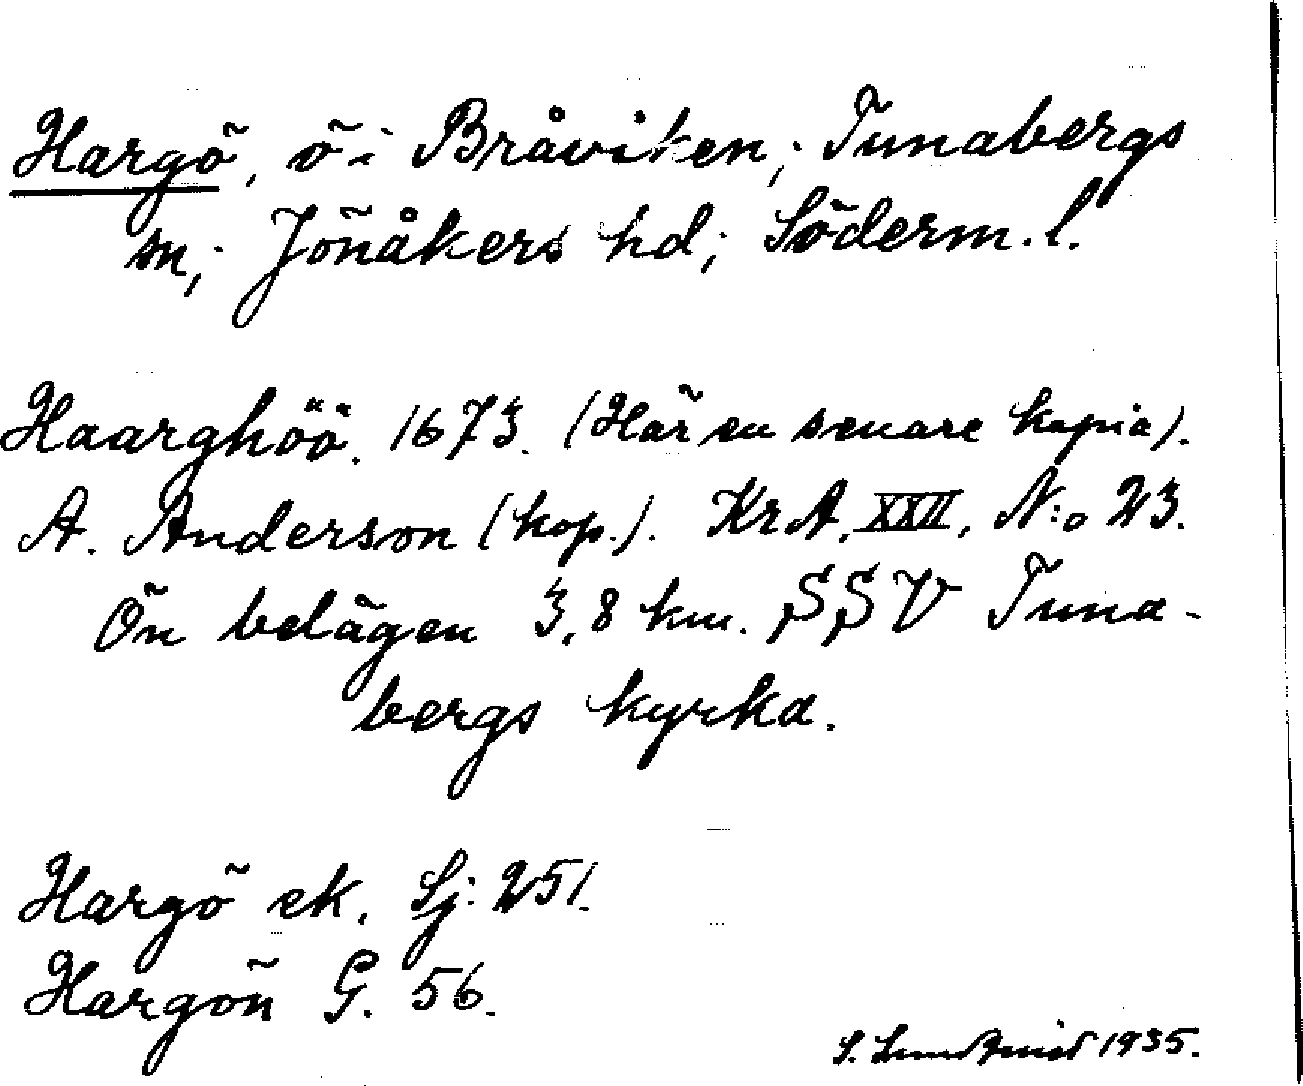 Hargö, ö i Bråviken; Tunabergs
sn; Jönåkers hd; Söderm. l.
Haarghöö. 1673. (Här en senare kopia).
A. Anderson (kop.). KrA, XXII, N:o 23.
Ön belägen 3,8 km. SSV Tuna-
bergs kyrka.
Hargö ek. Sj: 251.
Hargön G. 56.
S. Lundkvist 1935.